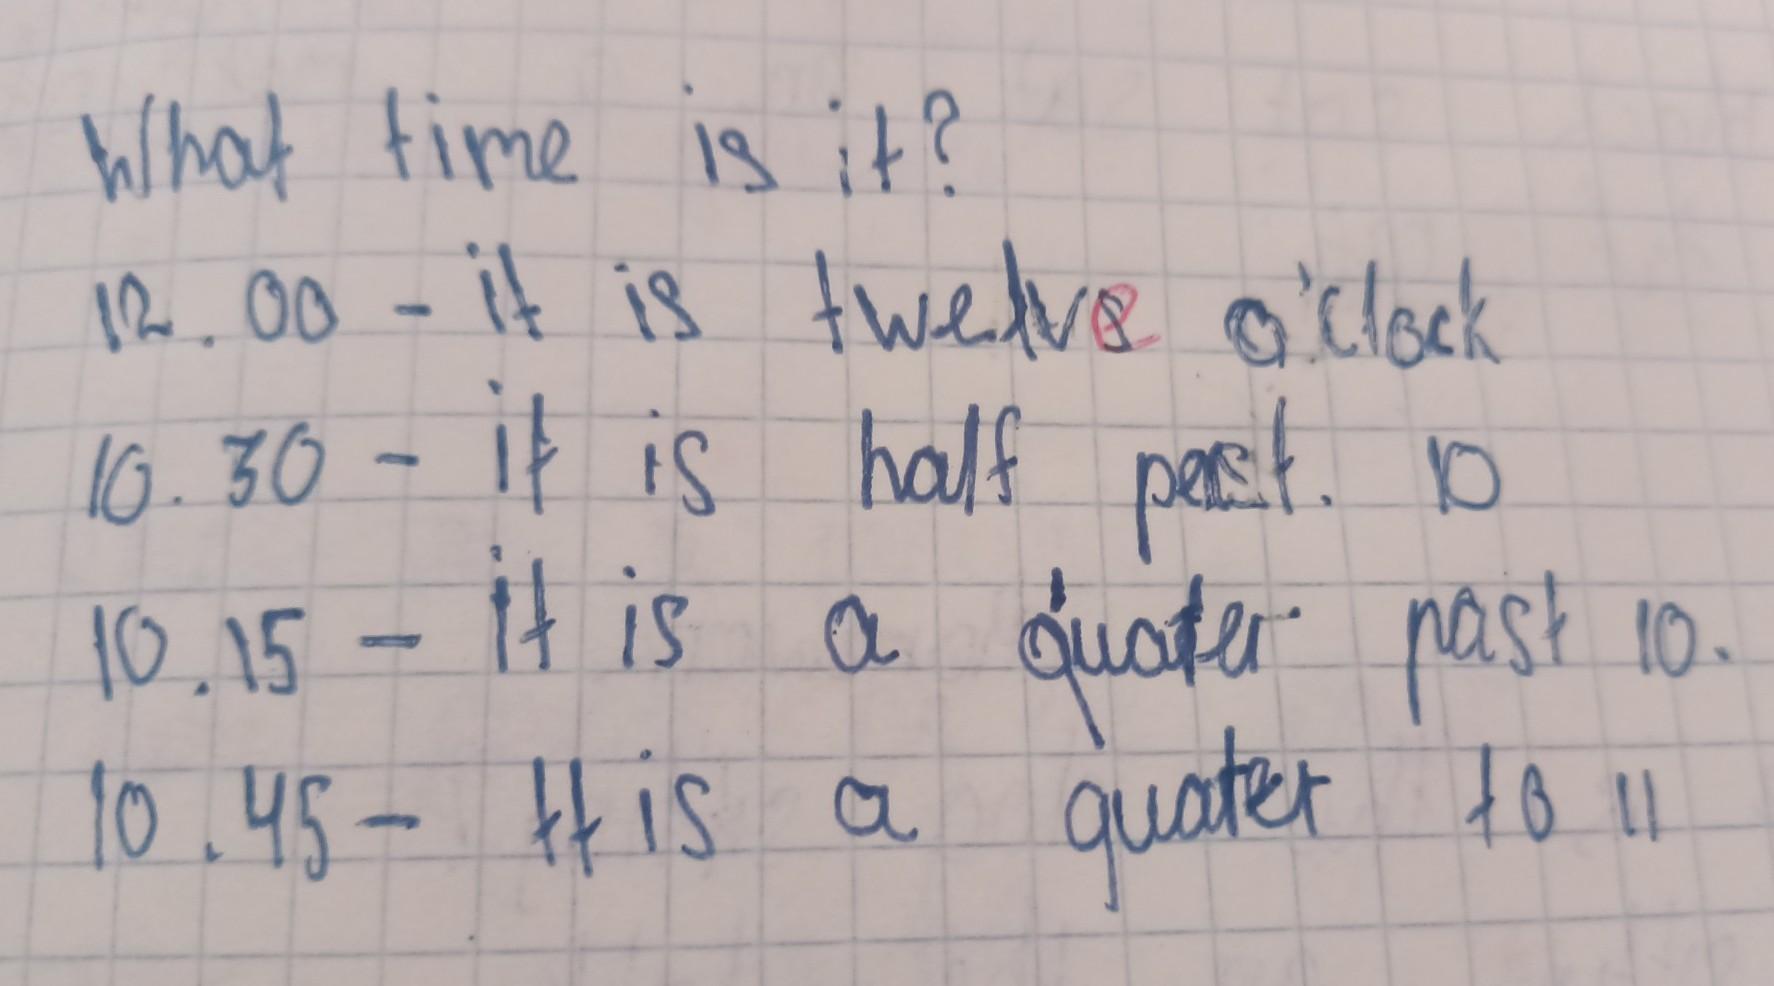 What time is it?
12.00 - it is twelve o'clock
10.30 - it is half past. 10
10.15 - it is a quater past 10.
10.45 - It is a quater to 11